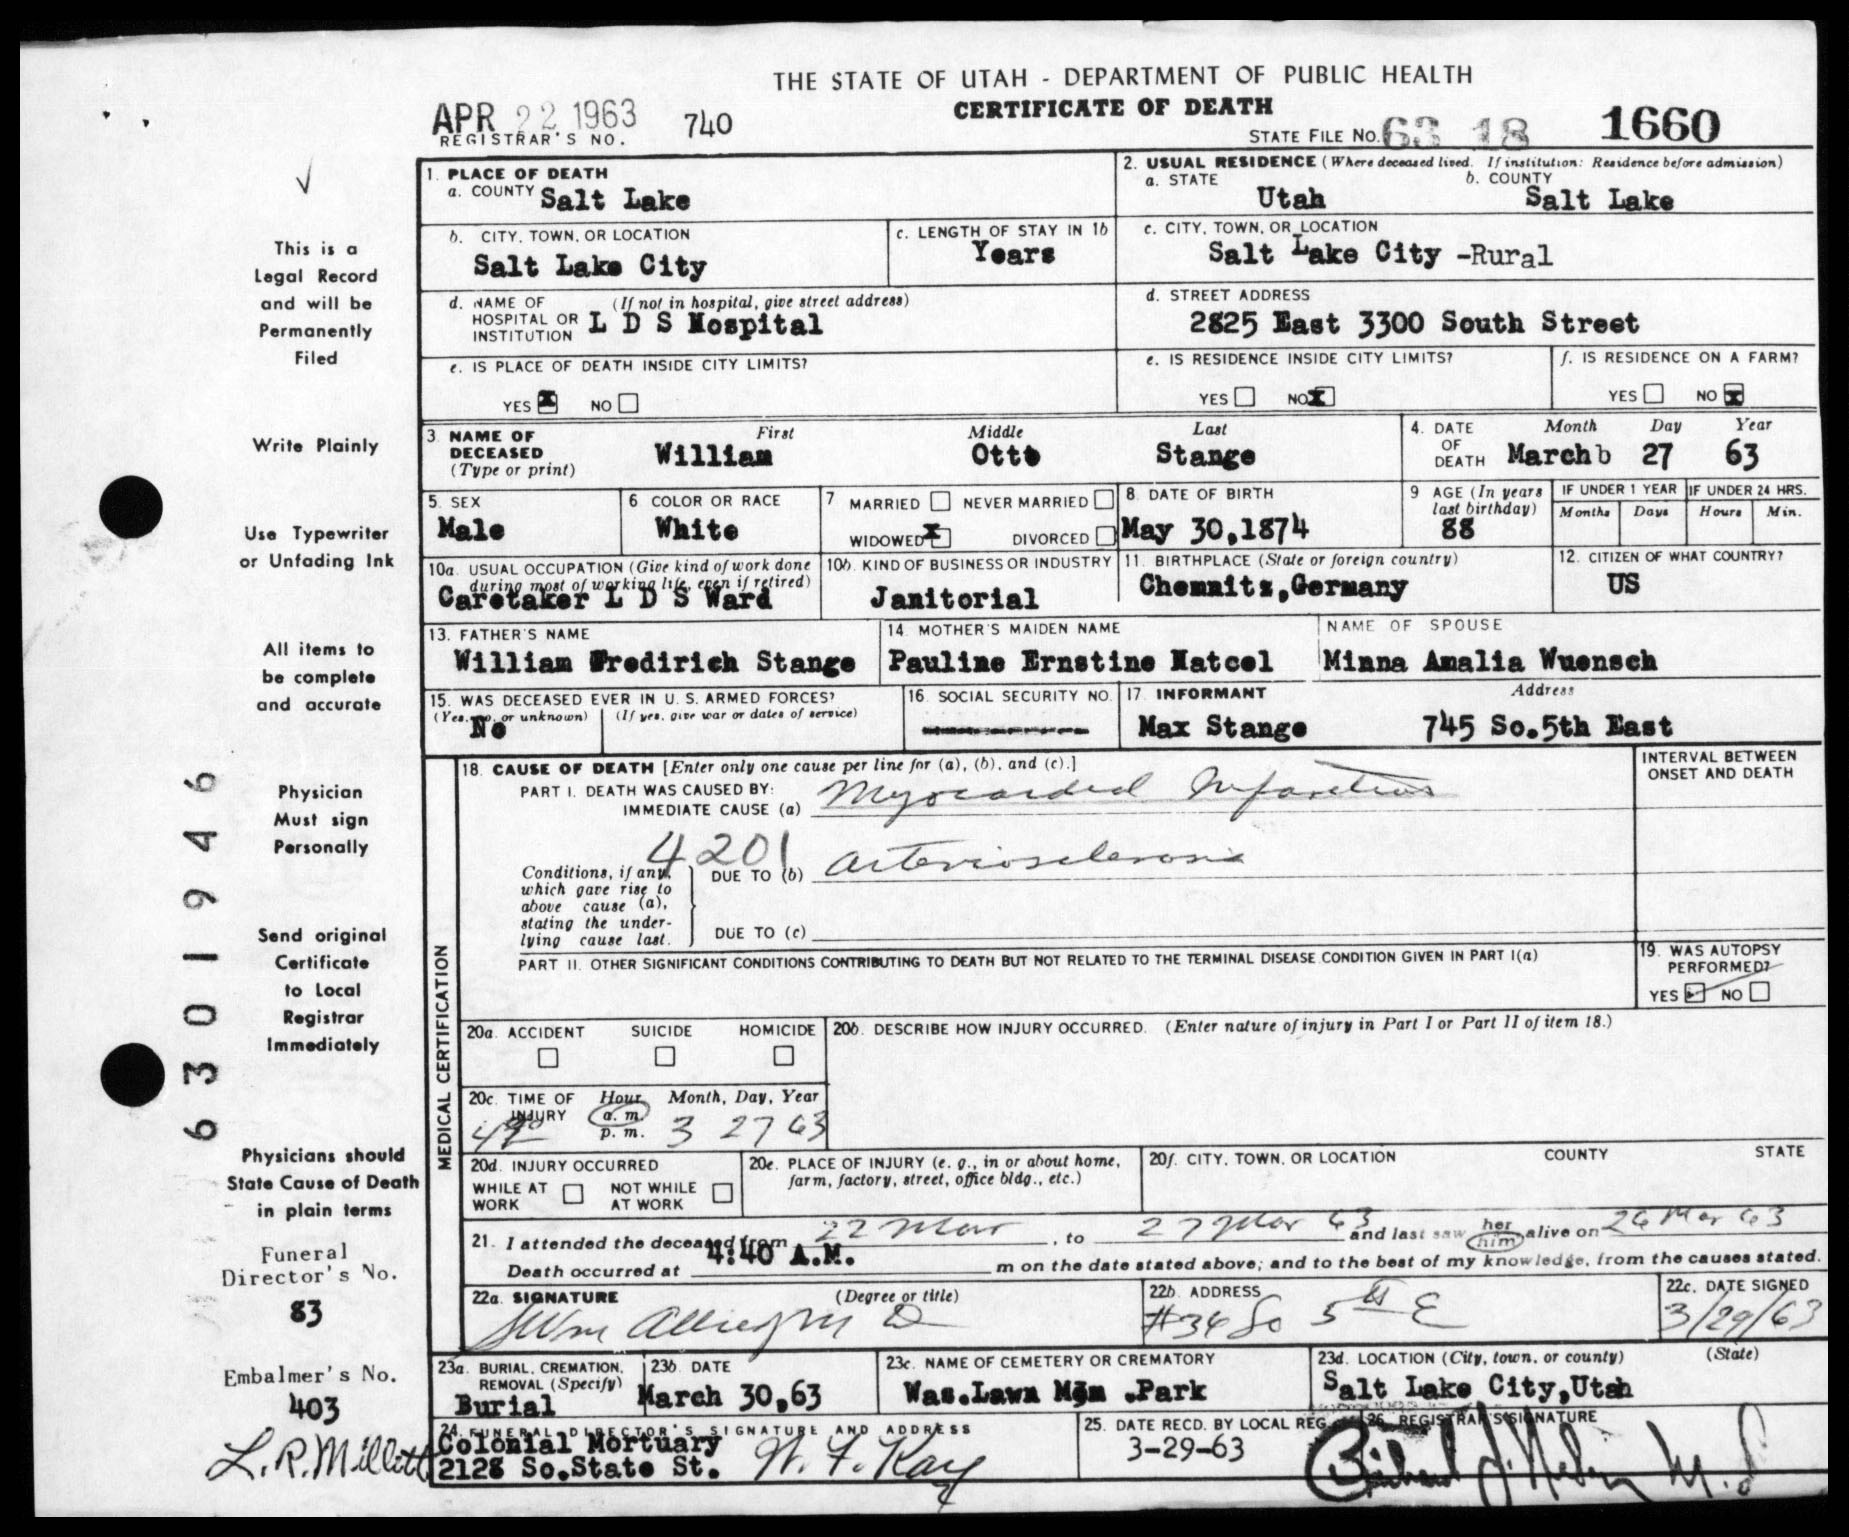 THE STATE OF UTAH - DEPARTMENT OF PUBLIC HEALTH
CERTIFICATE OF DEATH
APR 22 1963
740
REGISTRAR'S NO.
STATE FILE NO. 63 18 1660
This is a
Legal Record
and will be
Permanently
Filed
Write Plainly
Use Typewriter
or Unfading Ink
All items to
be complete
and accurate
Physician
Must sign
Personally
Send original
Certificate
to Local
Registrar
Immediately
Physicians should
State Cause of Death
in plain terms
Funeral
Director's No.
83
Embalmer's No.
403
L. R. Millett
6301946
1. PLACE OF DEATH
a. COUNTY Salt Lake
2. USUAL RESIDENCE (Where deceased lived. If institution: Residence before admission)
a. STATE Utah
b. COUNTY Salt Lake
b. CITY, TOWN, OR LOCATION
Salt Lake City
c. LENGTH OF STAY IN 1b
Years
c. CITY, TOWN, OR LOCATION
Salt Lake City -Rural
d. NAME OF HOSPITAL OR INSTITUTION (If not in hospital, give street address)
L D S Hospital
d. STREET ADDRESS
2825 East 3300 South Street
e. IS PLACE OF DEATH INSIDE CITY LIMITS?
YES X NO
e. IS RESIDENCE INSIDE CITY LIMITS?
YES NO X
f. IS RESIDENCE ON A FARM?
YES NO X
3. NAME OF DECEASED (Type or print)
First Middle Last
William Otto Stange
4. DATE OF DEATH
Month Day Year
Marchb 27 63
5. SEX
Male
6 COLOR OR RACE
White
7 MARRIED NEVER MARRIED
WIDOWED X DIVORCED
8. DATE OF BIRTH
May 30,1874
9 AGE (In years last birthday)
88
IF UNDER 1 YEAR
Months Days
IF UNDER 24 HRS.
Hours Min.
10a. USUAL OCCUPATION (Give kind of work done during most of working life, even if retired)
Caretaker L D S Ward
10b. KIND OF BUSINESS OR INDUSTRY
Janitorial
11. BIRTHPLACE (State or foreign country)
Chemnitz,Germany
12. CITIZEN OF WHAT COUNTRY?
US
13. FATHER'S NAME
William Fredirich Stange
14. MOTHER'S MAIDEN NAME
Pauline Ernstine Natcel
NAME OF SPOUSE
Minna Amalia Wuensch
15. WAS DECEASED EVER IN U. S. ARMED FORCES?
(Yes, no, or unknown) (If yes, give war or dates of service)
No
16. SOCIAL SECURITY NO.
17. INFORMANT Address
Max Stange 745 So.5th East
MEDICAL CERTIFICATION
18. CAUSE OF DEATH [Enter only one cause per line for (a), (b), and (c).]
INTERVAL BETWEEN ONSET AND DEATH
PART I. DEATH WAS CAUSED BY:
IMMEDIATE CAUSE (a) Myocardial Infarction
4201
Conditions, if any, which gave rise to above cause (a), stating the underlying cause last.
DUE TO (b) Arteriosclerosis
DUE TO (c)
PART II. OTHER SIGNIFICANT CONDITIONS CONTRIBUTING TO DEATH BUT NOT RELATED TO THE TERMINAL DISEASE CONDITION GIVEN IN PART I(a)
19. WAS AUTOPSY PERFORMED?
YES NO
20a. ACCIDENT SUICIDE HOMICIDE
20b. DESCRIBE HOW INJURY OCCURRED. (Enter nature of injury in Part I or Part II of item 18.)
20c. TIME OF INJURY Hour a. m. p. m. Month, Day, Year
3 27 63
20d. INJURY OCCURRED
WHILE AT WORK NOT WHILE AT WORK
20e. PLACE OF INJURY (e. g., in or about home, farm, factory, street, office bldg., etc.)
20f. CITY, TOWN, OR LOCATION COUNTY STATE
21. I attended the deceased from 22 Mar, to 27 Mar 63 and last saw her him alive on 26 Mar 63
Death occurred at 4:40 A.M. m on the date stated above; and to the best of my knowledge, from the causes stated.
22a. SIGNATURE (Degree or title)
M D
22b. ADDRESS
#34 So 5th E
22c. DATE SIGNED
3/29/63
23a. BURIAL, CREMATION, REMOVAL (Specify)
Burial
23b. DATE
March 30,63
23c. NAME OF CEMETERY OR CREMATORY
Was.Lawn Mem .Park
23d. LOCATION (City, town, or county) (State)
Salt Lake City,Utah
24. FUNERAL DIRECTOR'S SIGNATURE AND ADDRESS
Colonial Mortuary
2128 So.State St. W. F. Kay
25. DATE RECD. BY LOCAL REG.
3-29-63
26. REGISTRAR'S SIGNATURE